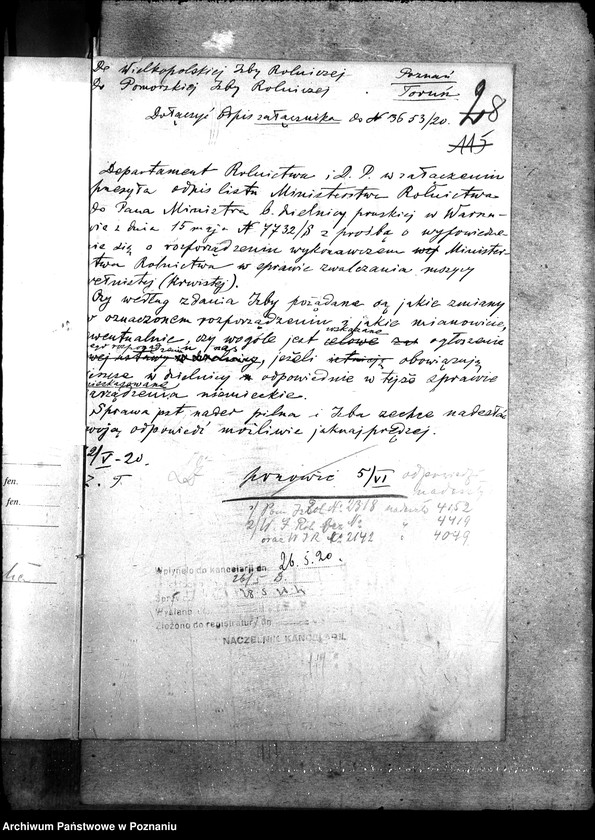 Do Wielkopolskiej Izby Rolniczej Poznań
Do Pomorskiej Izby Rolniczej. Toruń
28
Dołączyć Odpis załącznika do № 3653/20.
115
Departament Rolnictwa i D. P. w załączeniu
przesyła odpis listu Ministerstwa Rolnictwa
do Pana Ministra b. dzielnicy pruskiej w Warsza-
wie z dnia 15 maja № 7732/8 z prośbą o wypowiedze
nie się o rozporządzeniu wykonawczem Minister-
stwa Rolnictwa w sprawie zwalczania mszycy
wełnistej (krwistej).
Czy według zdania Izby pożądane są jakie zmiany
w oznaczonem rozporządzeniu i jakie mianowicie,
ewentualnie, czy wogóle jest wskazane celowe ogłoszenie
jeżeli istnieją obowiązują
jeszcze w dzielnicy odpowiednie w tejże sprawie
zarządzenia niemieckie.
Sprawa jest nader pilna i Izba zechce nadesłać
swoją odpowiedź możliwie jaknajprędzej.
/V-20.
Z. T.
ponowić 5/VI odpowiedź
1/ Pom Iz Rol № 2318 4152
2/ W. I Rol bez № " 4419
oraz W I R № 2142 " 4049
fen.
fen.
Wpłynęło do kancelarii dn. 26.5.20.
26/5 B.
Wysłano
Złożono do registratury dn.
NACZELNIK KANCELARJI.
Archiwum Państwowe w Poznaniu